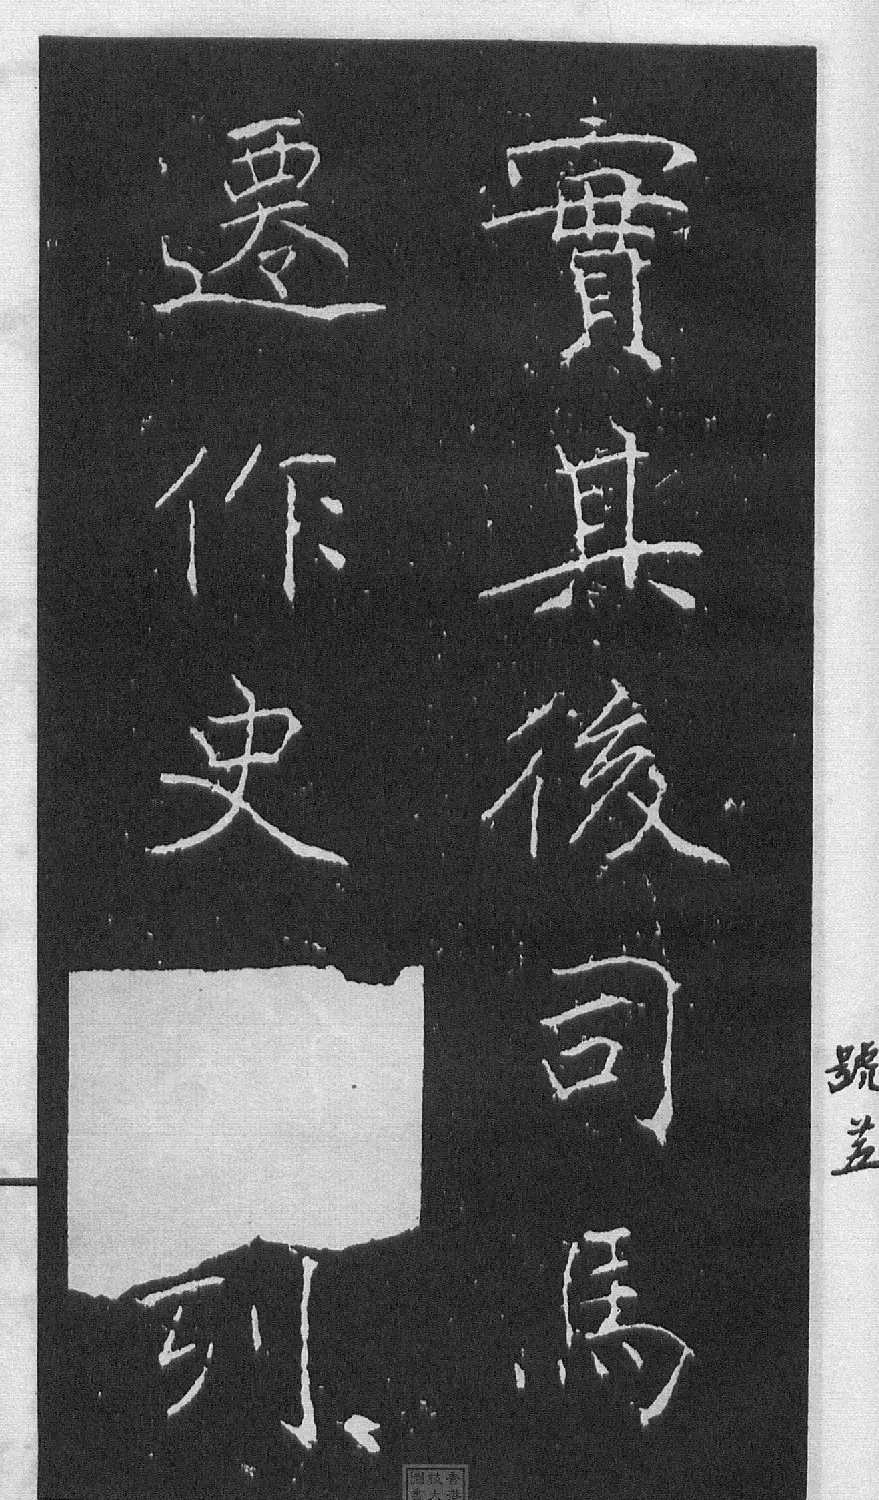 號
實其後司馬
遷作史列